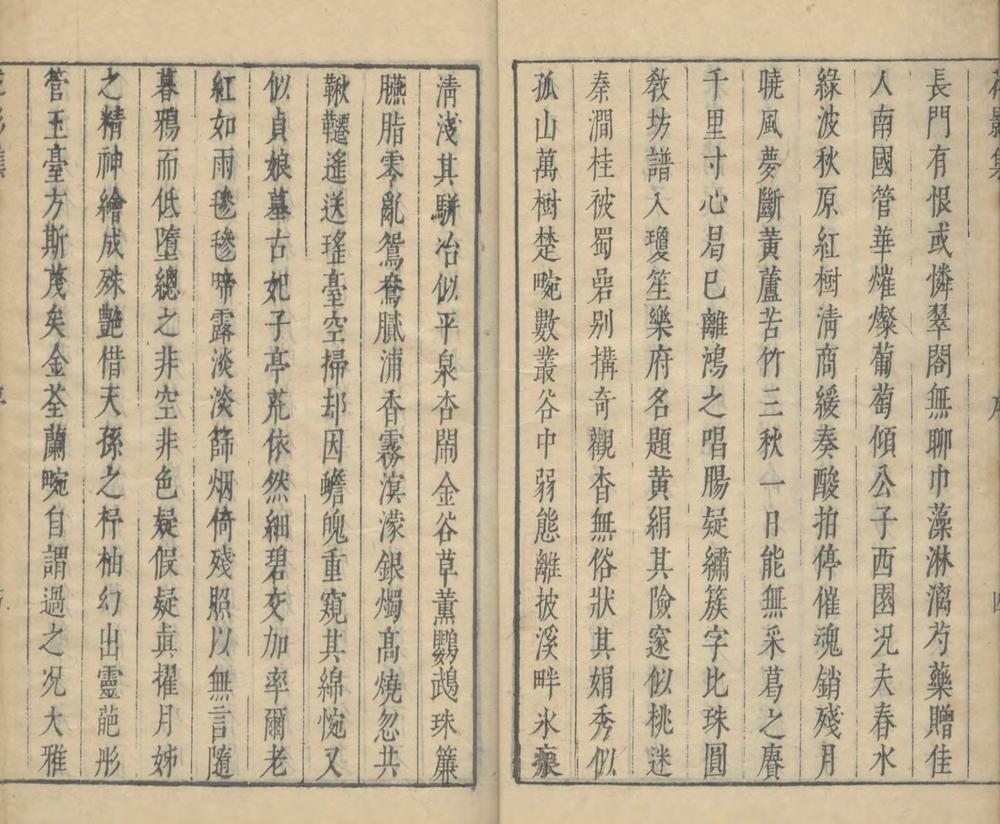 花影集
長門有恨或憐翠閣無聊巾藻淋漓芍藥贈佳
人南國管華熣燦葡萄傾公子西園况夫春水
綠波秋原紅樹清商緩奏酸拍停催魂銷殘月
曉風夢斷黃蘆苦竹三秋一日能無采葛之賡
千里寸心曷已離鴻之唱腸疑繡簇字比珠圓
敎坊譜入瓊笙樂府名題黃絹其險邃似桃迷
秦澗桂被蜀嵒别搆奇觀杳無俗狀其娟秀似
孤山萬樹楚畹數叢谷中弱態離披溪畔氷痕
清淺其駢冶似平泉杏閙金谷草薰鸚鵡珠簾
臙脂零亂鴛鴦膩浦香霧溟濛銀燭高燒忽共
鞦韆遙送瑤臺空掃却因蟾魄重窺其綿惋又
似貞娘墓古妃子亭荒依然細碧交加率爾老
紅如雨毿毿啼露淡淡篩烟倚殘照以無言隨
暮鴉而低墮總之非空非色疑假疑眞擢月姊
之精神繪成殊艶借天孫之杼柚幻出靈葩彤
管玉臺方斯蔑矣金荃蘭畹自謂過之况大雅